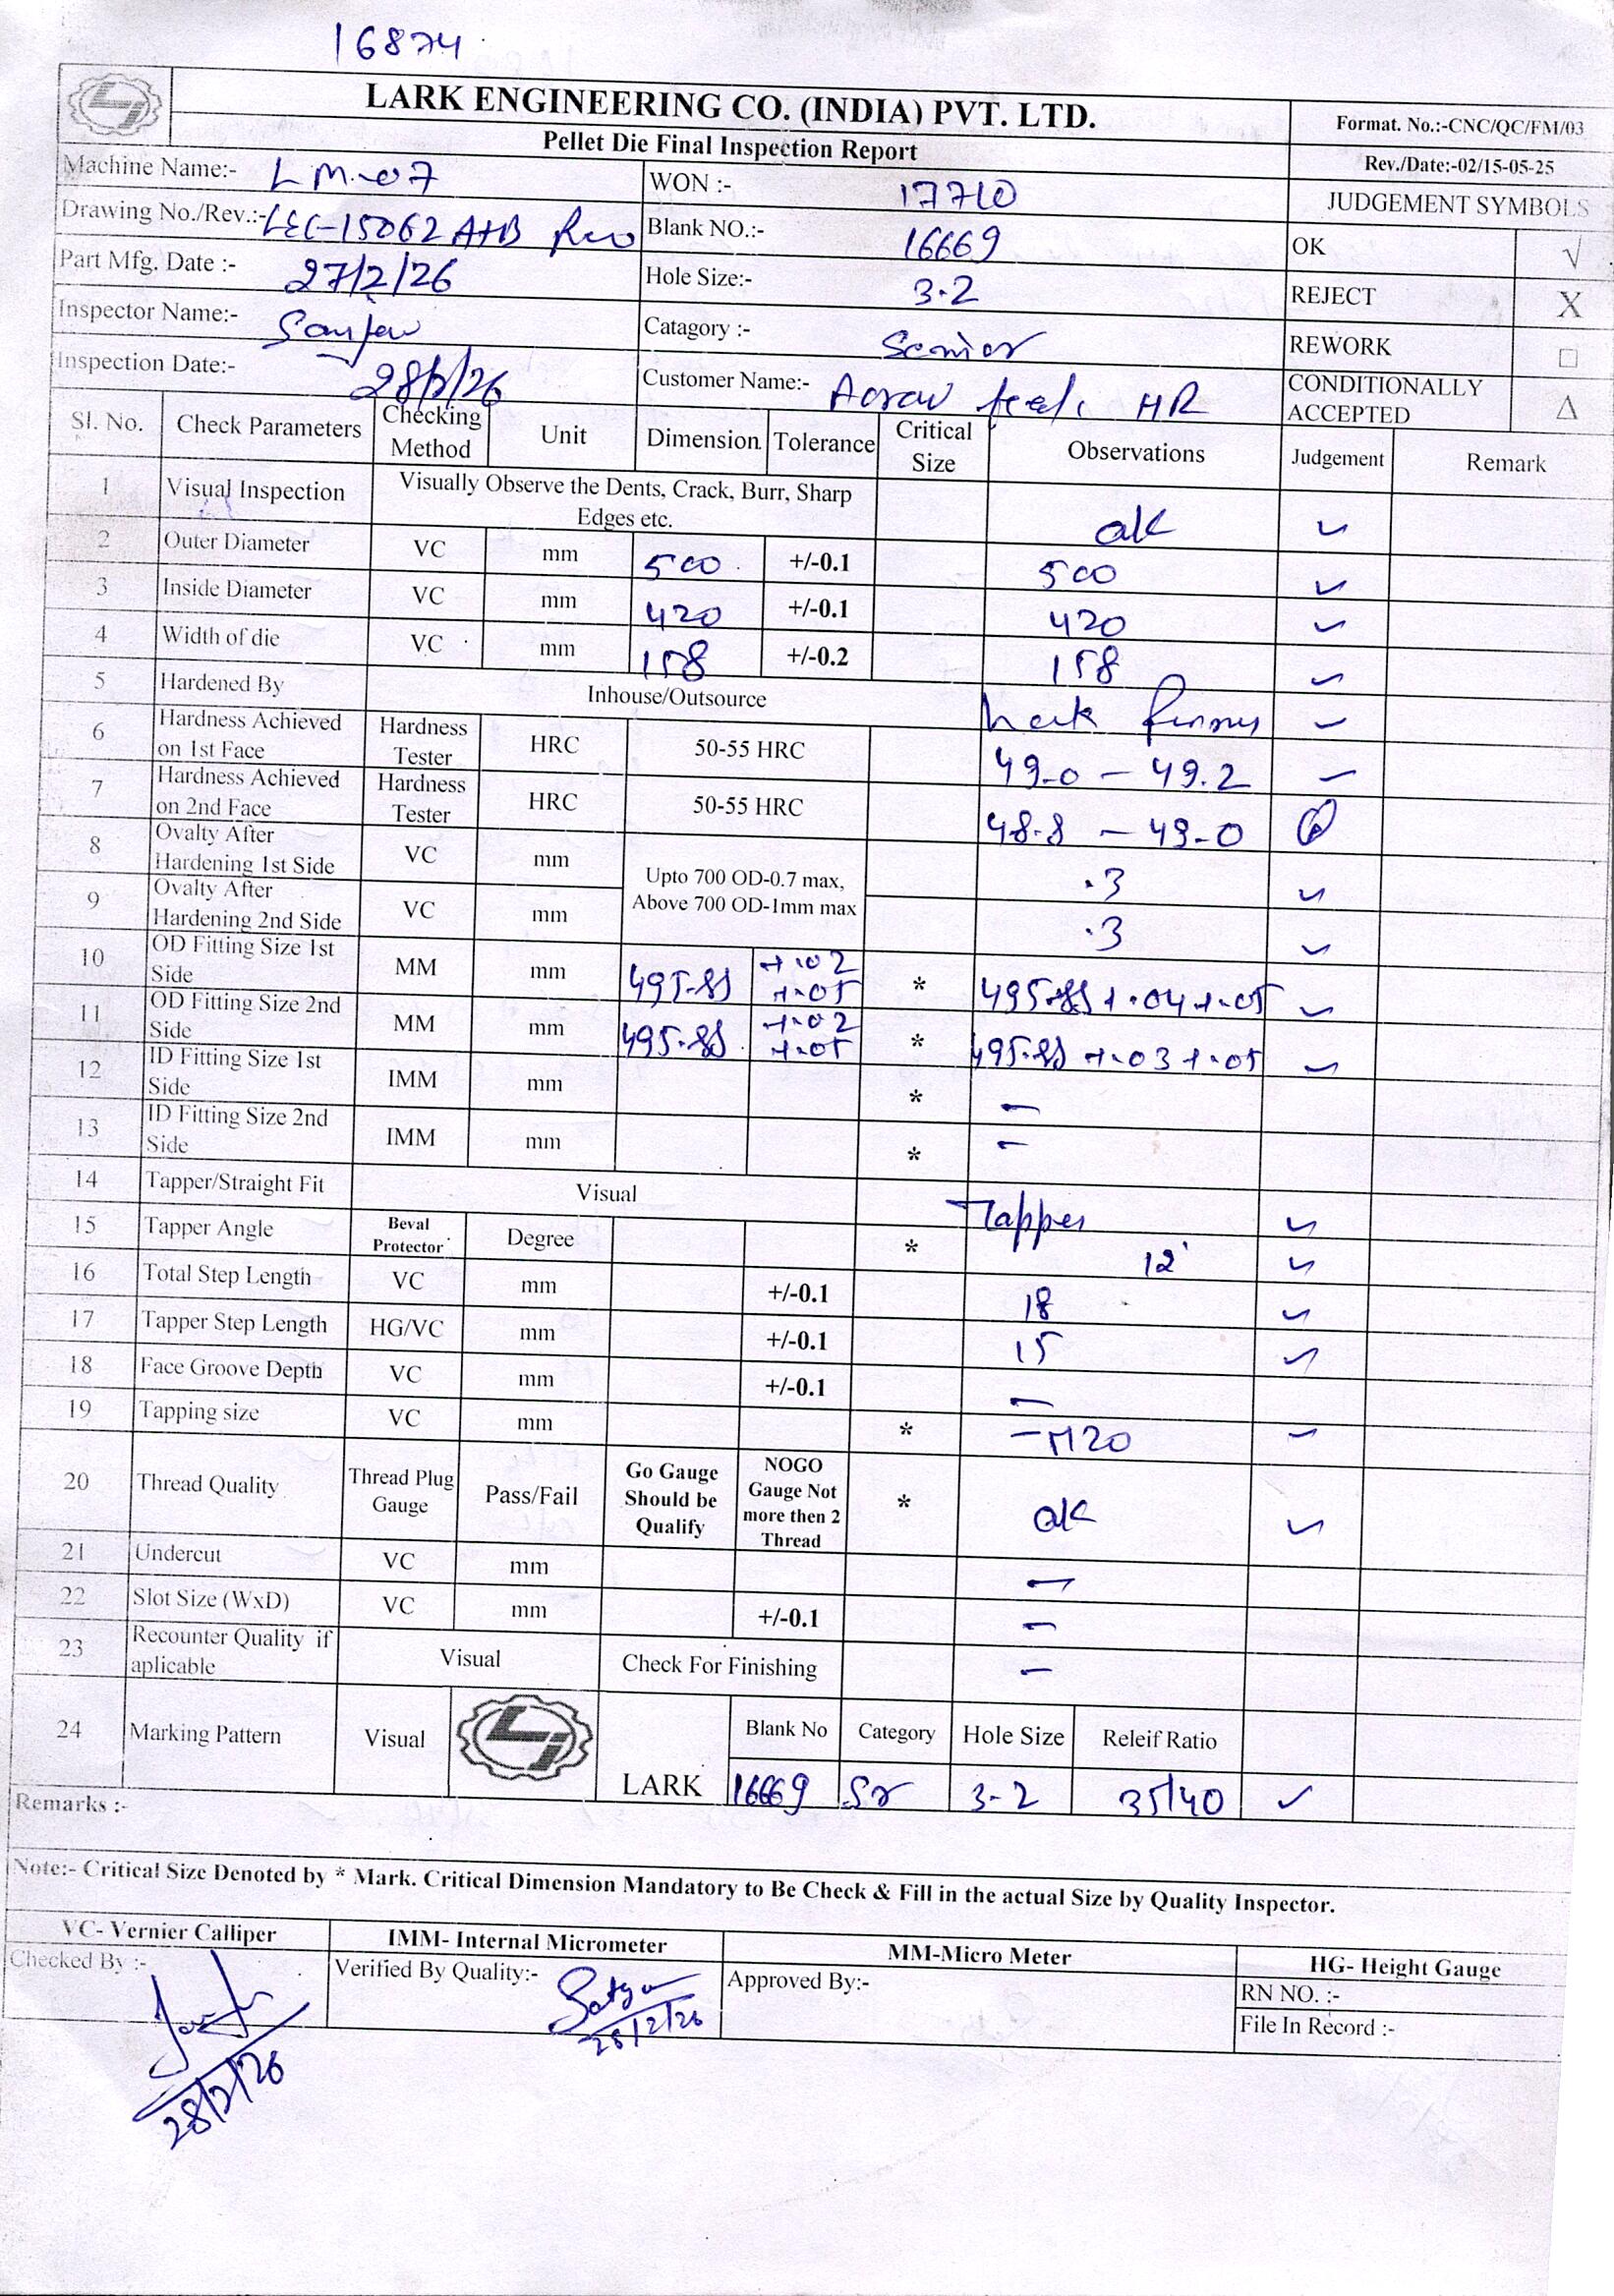 16874
LARK ENGINEERING CO. (INDIA) PVT. LTD.
Pellet Die Final Inspection Report
Format. No.:-CNC/QC/FM/03
Rev./Date:-02/15-05-25
Machine Name:- LM-07 WON :- 17710 JUDGEMENT SYMBOLS
Drawing No./Rev.:- LEC-15062 A+B Blank NO.:- 16669 OK √
Part Mfg. Date :- 27/2/26 Hole Size:- 3.2 REJECT X
Inspector Name:- Catagory :- Senior REWORK □
Inspection Date:- 28/2/26 Customer Name:- HR CONDITIONALLY ACCEPTED Δ
Sl. No. Check Parameters Checking Method Unit Dimension Tolerance Critical Size Observations Judgement Remark
1 Visual Inspection Visually Observe the Dents, Crack, Burr, Sharp Edges etc. ok ✓
2 Outer Diameter VC mm 500 +/-0.1 500 ✓
3 Inside Diameter VC mm 420 +/-0.1 420 ✓
4 Width of die VC mm 158 +/-0.2 158 ✓
5 Hardened By Inhouse/Outsource Lark ✓
6 Hardness Achieved on 1st Face Hardness Tester HRC 50-55 HRC 49.0 - 49.2 ✓
7 Hardness Achieved on 2nd Face Hardness Tester HRC 50-55 HRC 48.8 - 49.0
8 Ovalty After Hardening 1st Side VC mm Upto 700 OD-0.7 max, Above 700 OD-1mm max .3 ✓
9 Ovalty After Hardening 2nd Side VC mm .3 ✓
10 OD Fitting Size 1st Side MM mm +.02 +.05 * +.04 +.05 ✓
11 OD Fitting Size 2nd Side MM mm +.02 +.05 * +.03 +.05 ✓
12 ID Fitting Size 1st Side IMM mm * -
13 ID Fitting Size 2nd Side IMM mm * -
14 Tapper/Straight Fit Visual Tapper ✓
15 Tapper Angle Beval Protector Degree * 12° ✓
16 Total Step Length VC mm +/-0.1 18 ✓
17 Tapper Step Length HG/VC mm +/-0.1 15 ✓
18 Face Groove Depth VC mm +/-0.1 -
19 Tapping size VC mm * - M20 ✓
20 Thread Quality Thread Plug Gauge Pass/Fail Go Gauge Should be Qualify NOGO Gauge Not more then 2 Thread * ok ✓
21 Undercut VC mm -
22 Slot Size (WxD) VC mm +/-0.1 -
23 Recounter Quality if aplicable Visual Check For Finishing -
24 Marking Pattern Visual LI LARK Blank No Category Hole Size Releif Ratio
16669 Sr 3.2 35/40 ✓
Remarks :-
Note:- Critical Size Denoted by * Mark. Critical Dimension Mandatory to Be Check & Fill in the actual Size by Quality Inspector.
VC- Vernier Calliper IMM- Internal Micrometer MM-Micro Meter HG- Height Gauge
Checked By :- Verified By Quality:- Approved By:- RN NO. :-
File In Record :-
28/2/26
28/2/26